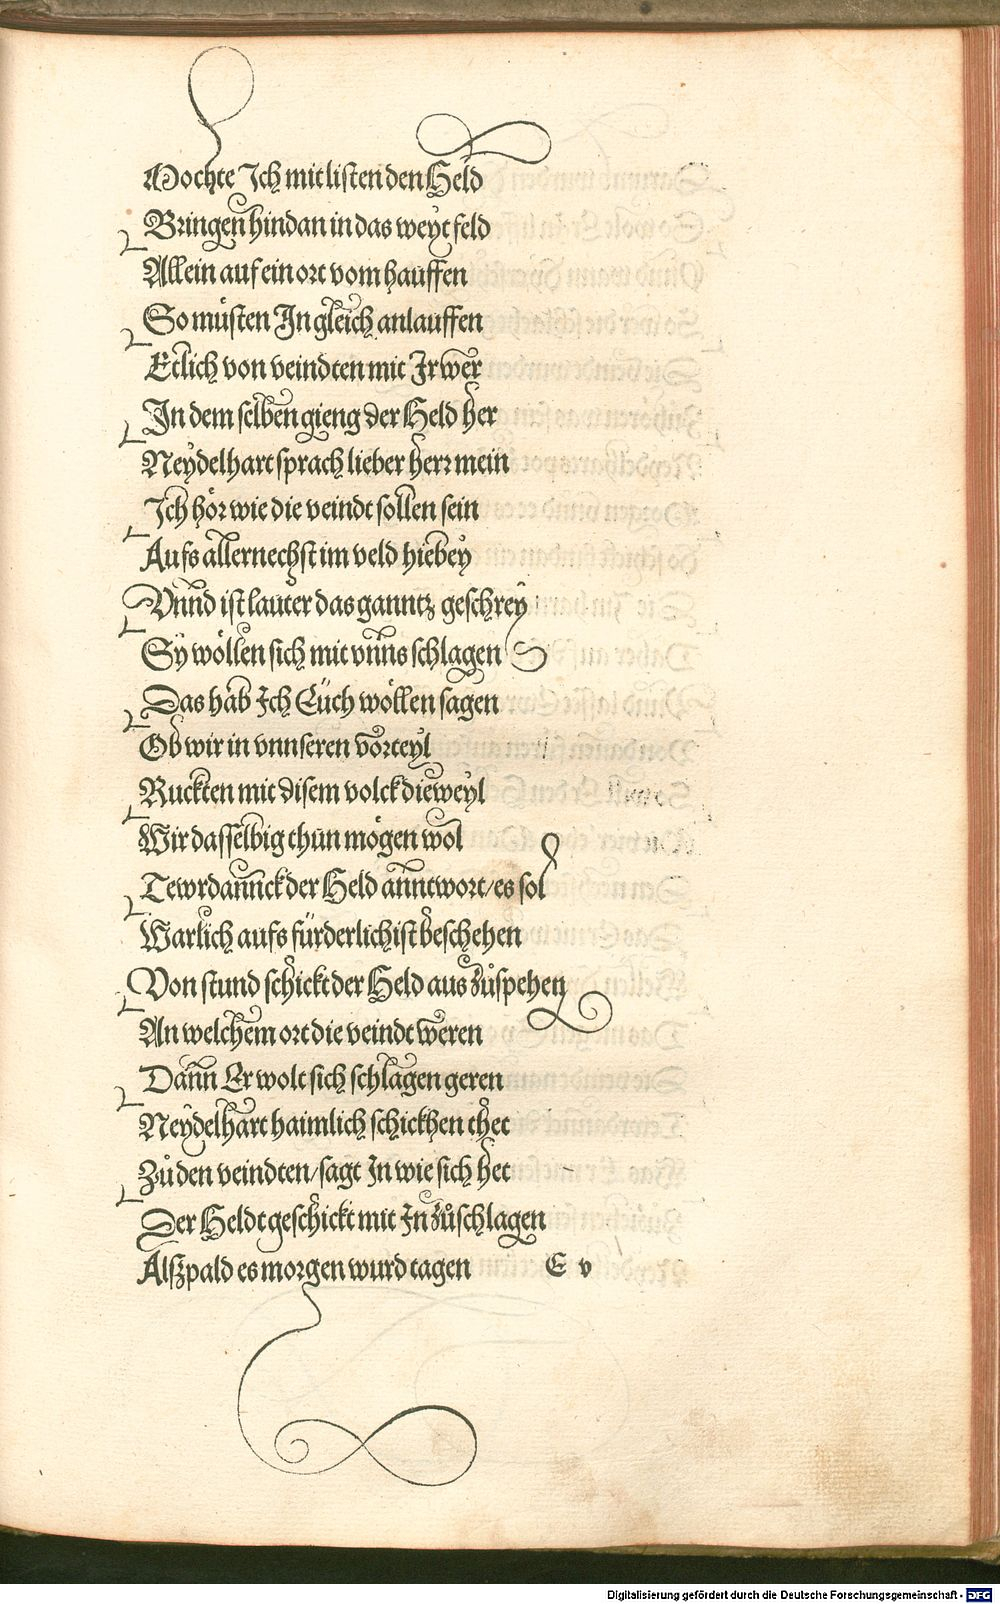 Mochte Ich mit listen den Held
Bringen hindan in das weyt feld
Allein auf ein ort vom hauffen
So müsten In gleich anlauffen
Etlich von veindten mit Ir wer
In dem selben gieng der Held her
Neydelhart sprach lieber herr mein
Ich hör wie die veindt sollen sein
Aufs allernechst im veld hiebey
Vnnd ist lauter das ganntz geschrey
Sy wöllen sich mit vnns schlagen
Das hab Ich Eüch wöllen sagen
Ob wir in vnnseren vorteyl
Ruckten mit disem volck dieweyl
Wir dasselbig thun mögen wol
Tewrdannck der Held anntwort/es sol
Warlich aufs fürderlichist beschehen
Von stund schickt der Held aus zůspehen
An welchem ort die veindt weren
Dann Er wolt sich schlagen geren
Neydelhart haimlich schickhen thet
Zů den veindten/sagt In wie sich het
Der Heldt geschickt mit In zůschlagen
Alßpald es morgen wurd tagen E v
Digitalisierung gefördert durch die Deutsche Forschungsgemeinschaft - DFG